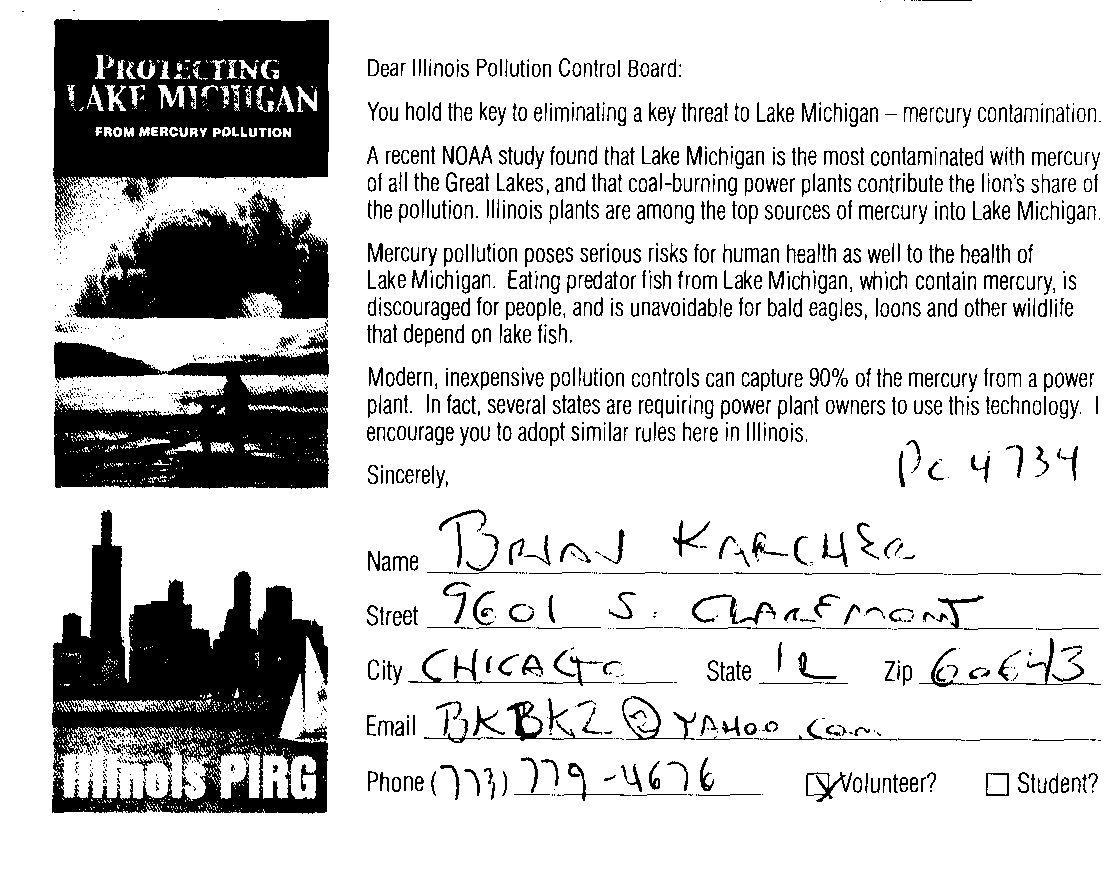 PROTECTING
LAKE MICHIGAN
FROM MERCURY POLLUTION
Illinois PIRG
Dear Illinois Pollution Control Board:
You hold the key to eliminating a key threat to Lake Michigan – mercury contamination.
A recent NOAA study found that Lake Michigan is the most contaminated with mercury
of all the Great Lakes, and that coal-burning power plants contribute the lion's share of
the pollution. Illinois plants are among the top sources of mercury into Lake Michigan.
Mercury pollution poses serious risks for human health as well to the health of
Lake Michigan. Eating predator fish from Lake Michigan, which contain mercury, is
discouraged for people, and is unavoidable for bald eagles, loons and other wildlife
that depend on lake fish.
Modern, inexpensive pollution controls can capture 90% of the mercury from a power
plant. In fact, several states are requiring power plant owners to use this technology. I
encourage you to adopt similar rules here in Illinois.
Sincerely,
PC 4734
Name BRIAN KARCHER
Street 9601 S. CLAREMONT
City CHICAGO State IL Zip 60643
Email BKBK2@YAHOO.COM
Phone (773) 779-4676 Volunteer? Student?